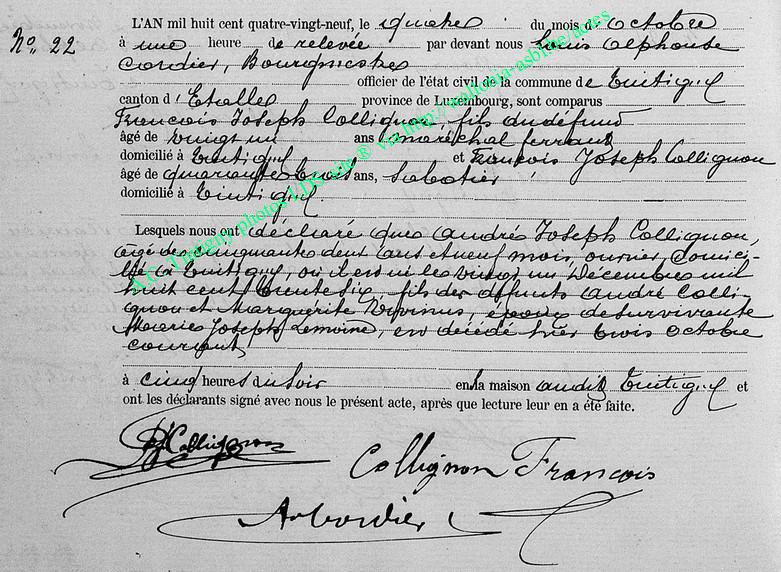 No. 22
L'AN mil huit cent quatre-vingt-neuf, le quatre du mois d'Octobre
à une heure de relevée par devant nous Louis Alphonse
Cordier, Bourgmestre
officier de l'état civil de la commune de Tintigny
canton d'Etalle province de Luxembourg, sont comparus
François Joseph Collignon, fils du défunt
âgé de vingt un ans, maréchal ferrant
domicilié à Tintigny et François Joseph Collignon
âgé de quarante trois ans, sabotier
domicilié à Tintigny.
Lesquels nous ont déclaré que André Joseph Collignon,
âgé de cinquante deux ans et neuf mois, ouvrier, domici-
lié à Tintigny, où il est né le vingt un Décembre mil
huit cent trente six, fils des défunts André Colli-
gnon et Marguérite, époux de survivante
Marie Joseph Lemoine, est décédé hier trois octobre
courant
à cinq heures du soir en la maison audit Tintigny et
ont les déclarants signé avec nous le présent acte, après que lecture leur en a été faite.
Collignon
Collignon François
A Cordier